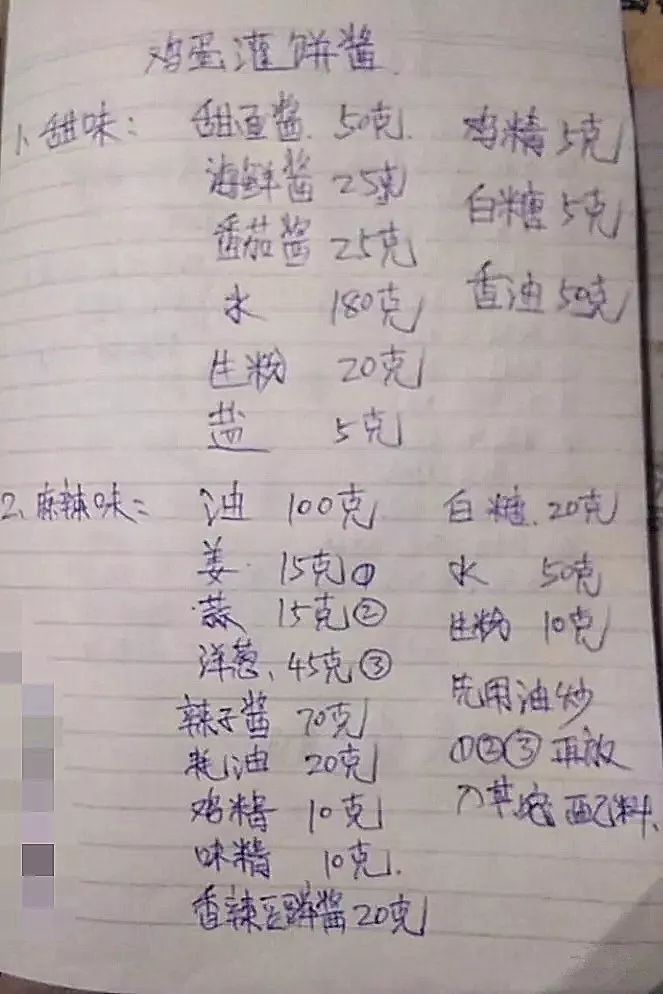 鸡蛋灌饼酱
1、甜味：
甜面酱 50克
海鲜酱 25克
番茄酱 25克
水 180克
生粉 20克
盐 5克
鸡精 5克
白糖 5克
香油 50克
2、麻辣味：
油 100克
姜 15克①
蒜 15克②
洋葱、45克③
辣子酱 70克
耗油 20克
鸡精 10克
味精 10克.
香辣豆瓣酱20克
白糖、20克
水 50克
生粉 10克
先用油炒
①②③再放
其它配料、